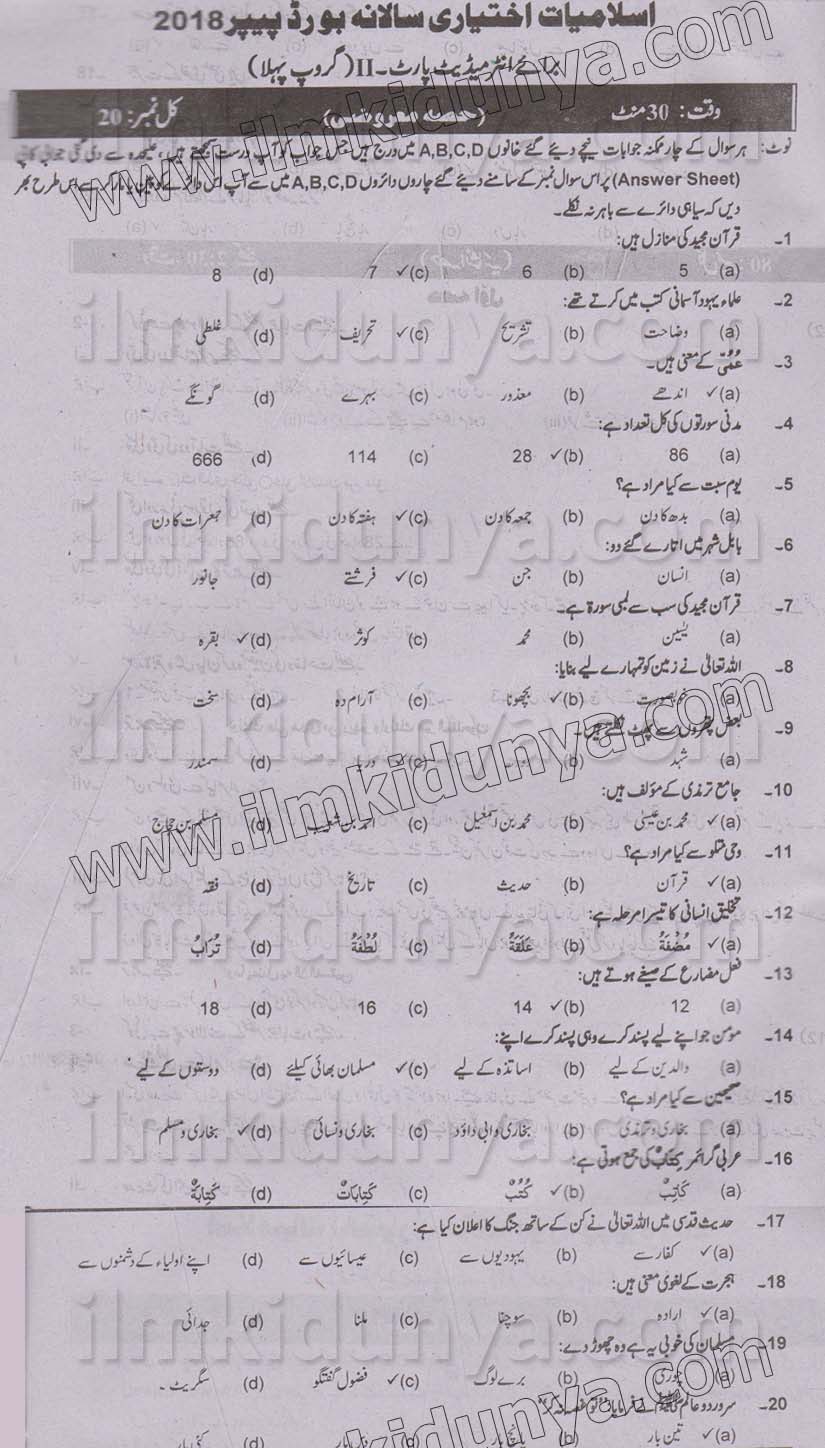 اسلامیات اختیاری سالانہ بورڈ پیپر 2018
برائے انٹرمیڈیٹ پارٹ۔II (گروپ پہلا)
وقت: 30 منٹ (حصہ معروضی) کل نمبر: 20
نوٹ: ہر سوال کے چار ممکنہ جوابات نیچے دیئے گئے خانوں A,B,C,D میں درج ہیں جس جواب کو آپ درست سمجھتے ہیں، علیحدہ سے دی گئی جوابی کاپی
(Answer Sheet) پر اس سوال نمبر کے سامنے دیئے گئے چاروں دائروں A,B,C,D میں سے آپ اس دائرے کو پین یا مارکر سے اس طرح بھر
دیں کہ سیاہی دائرے سے باہر نہ نکلے۔
1۔ قرآن مجید کی منازل ہیں:
(a) 5 (b) 6 (c)✓ 7 (d) 8
2۔ علماء یہود آسمانی کتب میں کرتے تھے:
(a) وضاحت (b) تشریح (c)✓ تحریف (d) غلطی
3۔ عُمْیٌ کے معنی ہیں۔
(a)✓ اندھے (b) معذور (c) بہرے (d) گونگے
4۔ مدنی سورتوں کی کل تعداد ہے:
(a) 86 (b)✓ 28 (c) 114 (d) 666
5۔ یوم سبت سے کیا مراد ہے؟
(a) بدھ کا دن (b) جمعہ کا دن (c)✓ ہفتہ کا دن (d) جمعرات کا دن
6۔ بابل شہر میں اتارے گئے دو:
(a) انسان (b) جن (c)✓ فرشتے (d) جانور
7۔ قرآن مجید کی سب سے لمبی سورۃ ہے۔
(a) یٰسین (b) محمد (c) کوثر (d)✓ بقرہ
8۔ اللہ تعالیٰ نے زمین کو تمہارے لیے بنایا:
(a) خوبصورت (b)✓ بچھونا (c) آرام دہ (d) سخت
9۔ بعض پتھروں سے پھوٹ نکلتے ہیں۔
(a) شہد (b) (c)✓ دریا (d) سمندر
10۔ جامع ترمذی کے مؤلف ہیں:
(a)✓ محمد بن عیسیٰ (b) محمد بن اسمٰعیل (c) احمد بن شعیب (d) مسلم بن حجاج
11۔ وحی متلو سے کیا مراد ہے؟
(a)✓ قرآن (b) حدیث (c) تاریخ (d) فقہ
12۔ تخلیق انسانی کا تیسرا مرحلہ ہے:
(a)✓ مُضْغَةٌ (b) عَلَقَةٌ (c) نُطْفَةٌ (d) تُرَابٌ
13۔ فعل مضارع کے صیغے ہوتے ہیں:
(a) 12 (b)✓ 14 (c) 16 (d) 18
14۔ مومن جو اپنے لیے پسند کرے وہی پسند کرے اپنے:
(a) والدین کے لیے (b) اساتذہ کے لیے (c)✓ مسلمان بھائی کیلئے (d) دوستوں کے لیے
15۔ صحیحین سے کیا مراد ہے؟
(a) بخاری و ترمذی (b) بخاری و ابی داؤد (c) بخاری و نسائی (d)✓ بخاری و مسلم
16۔ عربی گرائمر میں کِتَابٌ کی جمع ہوتی ہے:
(a) کَاتِبٌ (b)✓ کُتُبٌ (c) کِتَابَاتٌ (d) کِتَابَةٌ
17۔ حدیث قدسی میں اللہ تعالیٰ نے کن کے ساتھ جنگ کا اعلان کیا ہے:
(a)✓ کفار سے (b) یہودیوں سے (c) عیسائیوں سے (d) اپنے اولیاء کے دشمنوں سے
18۔ ہجرت کے لغوی معنی ہیں:
(a)✓ ارادہ (b) سوچنا (c) ملنا (d) جدائی
19۔ مسلمان کی خوبی یہ ہے وہ چھوڑ دے:
(a) چوری (b) برے لوگ (c)✓ فضول گفتگو (d) سگریٹ۔
20۔ سرور دو عالم ﷺ نے فرمایا "تو غصہ نہ کر"
(a)✓ تین بار (b) پانچ بار (c) چار بار (d) کئی بار
www.ilmkidunya.com
ilmkidunya.com
ilmkidunya.com
www.ilmkidunya.com
ilmkidunya.com
ilmkidunya.com
ilmkidunya.com
ilmkidunya.com